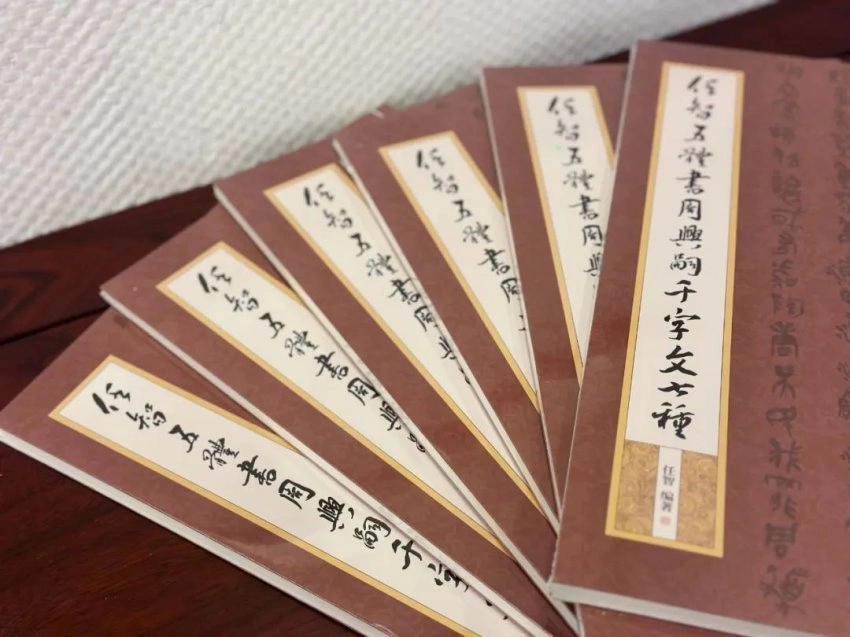 任智五體書周興嗣千字文七種
任智 編著
任智五體書周興
任智五體書周
任智五體書周興
任智五體書周興
任智五體書周興嗣千字